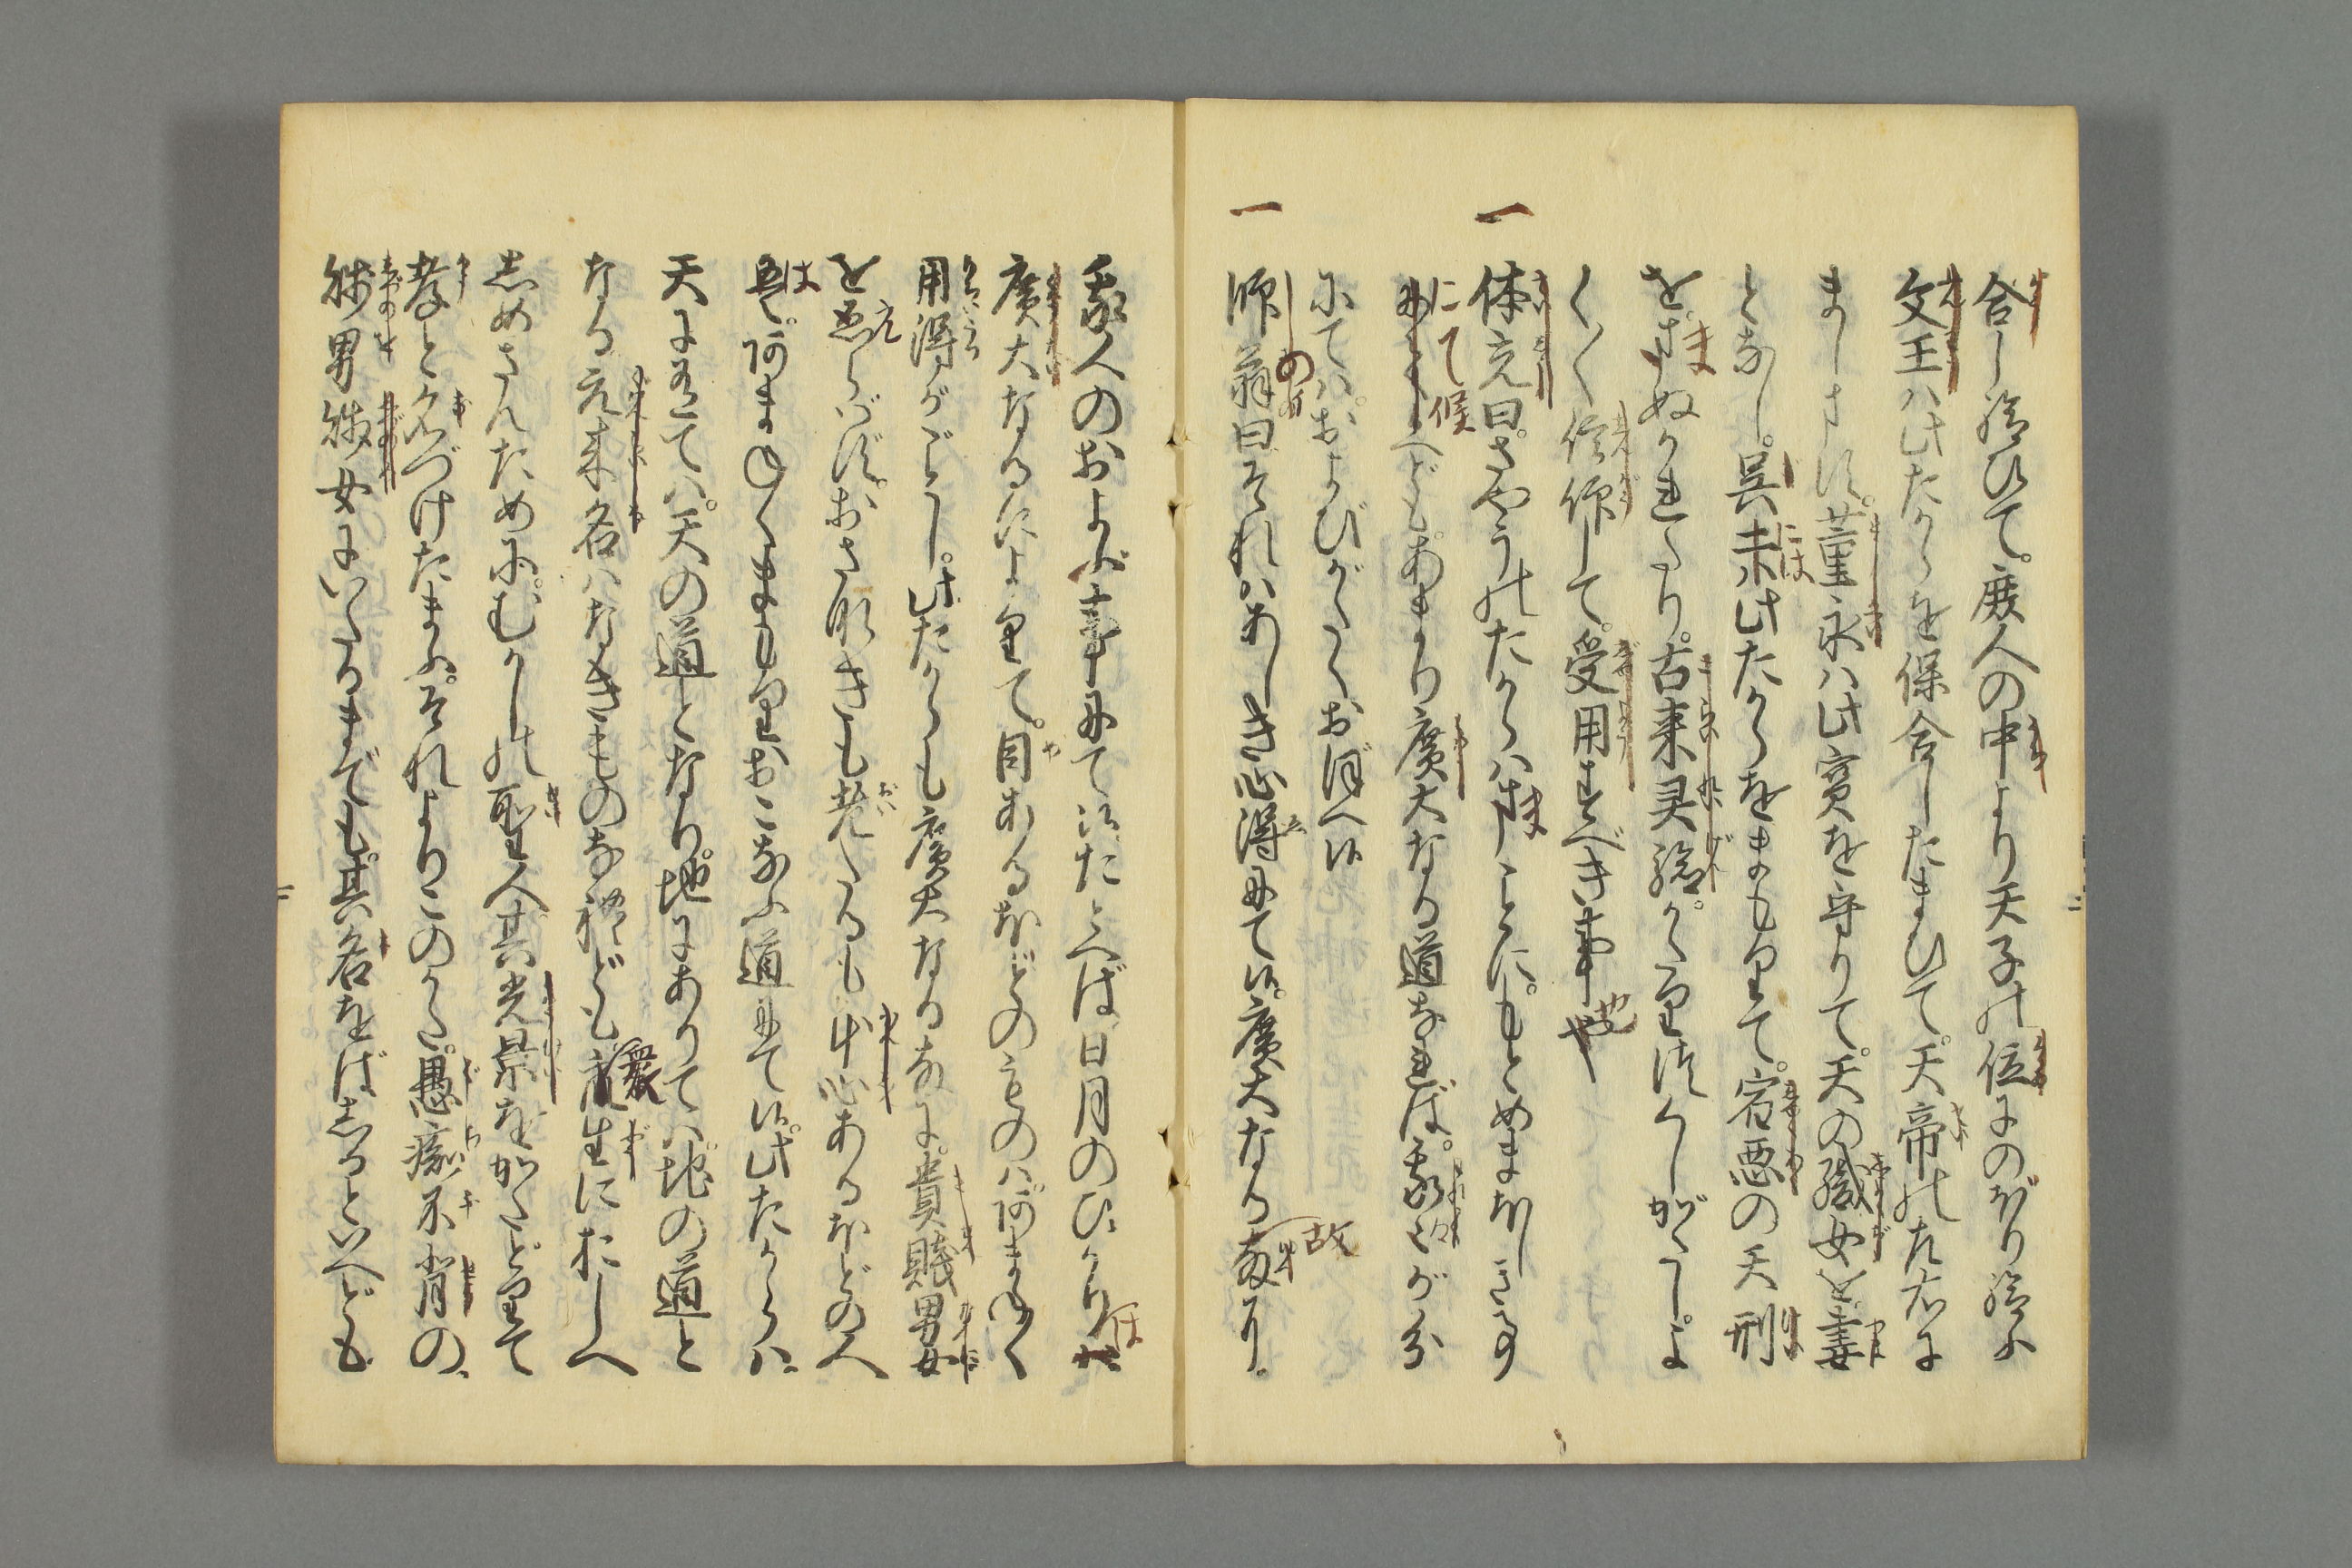 合し給ひて。庶人の中より天子の位にのぼり給ふ
文王ハ此たからを保合したまひて。天帝の左右に
まします。董永ハ此宝を守りて。天の織女を妻
となし。呉二ハ此たからをまもりて。宿悪の天刑
をまぬかれたり。古来灵验かくのごとし。よ
く〳〵信仰して。受用すべき事也
一 体充曰。さやうのたからハまことに。もとめまほしきもの
にて候へども。あまり廣大なる道なれば。我等が分
にてハおよびがたくおぼへ候
一 師の翁曰それハあしき心得にて候。廣大なる故に。
我人のおよぶ事にて候。たとへば日月のひかりは
廣大なるによりて。目あるほどのものハあまねく
用得がごとし。此たからも廣大なる故に。貴賎男女
をゑらばず。おさなきも老たるも本心ある
ほどの人は。あまねくまもりおこなふ道にて候。此たからハ
天にありてハ。天の道となり。地にありてハ地の道と
なる元来名ハなきものなれども衆生におしへ
しめさんために。むかしの聖人其光景をかたどりて
孝と名づけたまふ。それよりこのかた。愚痴不肖の
賤男賤女にいたるまでも。其名をばしるといへども